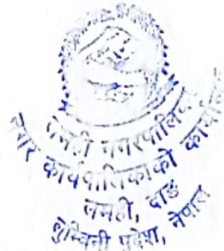 लमही नगरपालिका
नगर कार्यपालिकाको कार्यालय
लमही, दाङ
लुम्बिनी प्रदेश, नेपाल